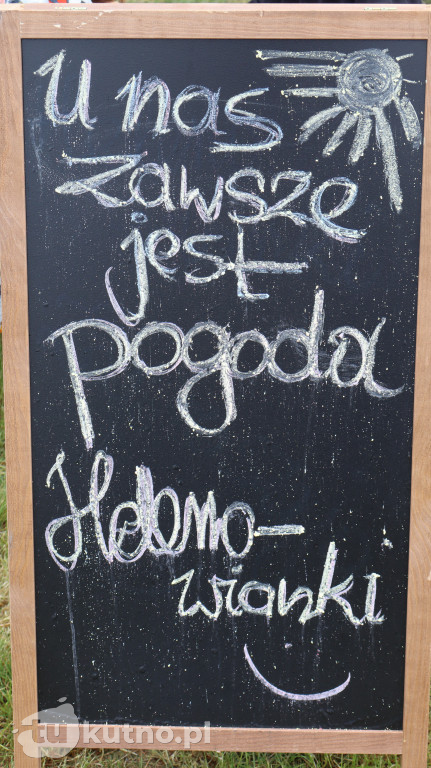 U nas
zawsze
jest
pogoda
Hebno-
wianki
tukutno.pl